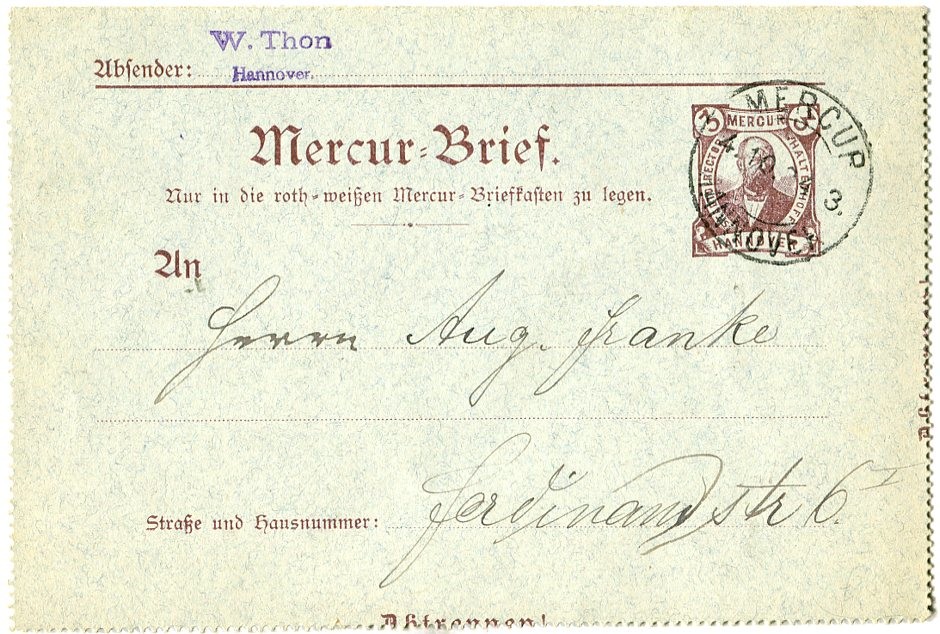 W. Thon
Absender: Hannover.
Mercur-Brief.
Nur in die roth-weißen Mercur-Briefkasten zu legen.
3 MERCUR 3
HANNOVER
MERCUR
4. 10.
3.
HANNOVER
An
Herrn Aug. Franke
Straße und Hausnummer: Ferdinandstr 6 I
Abtrennen!